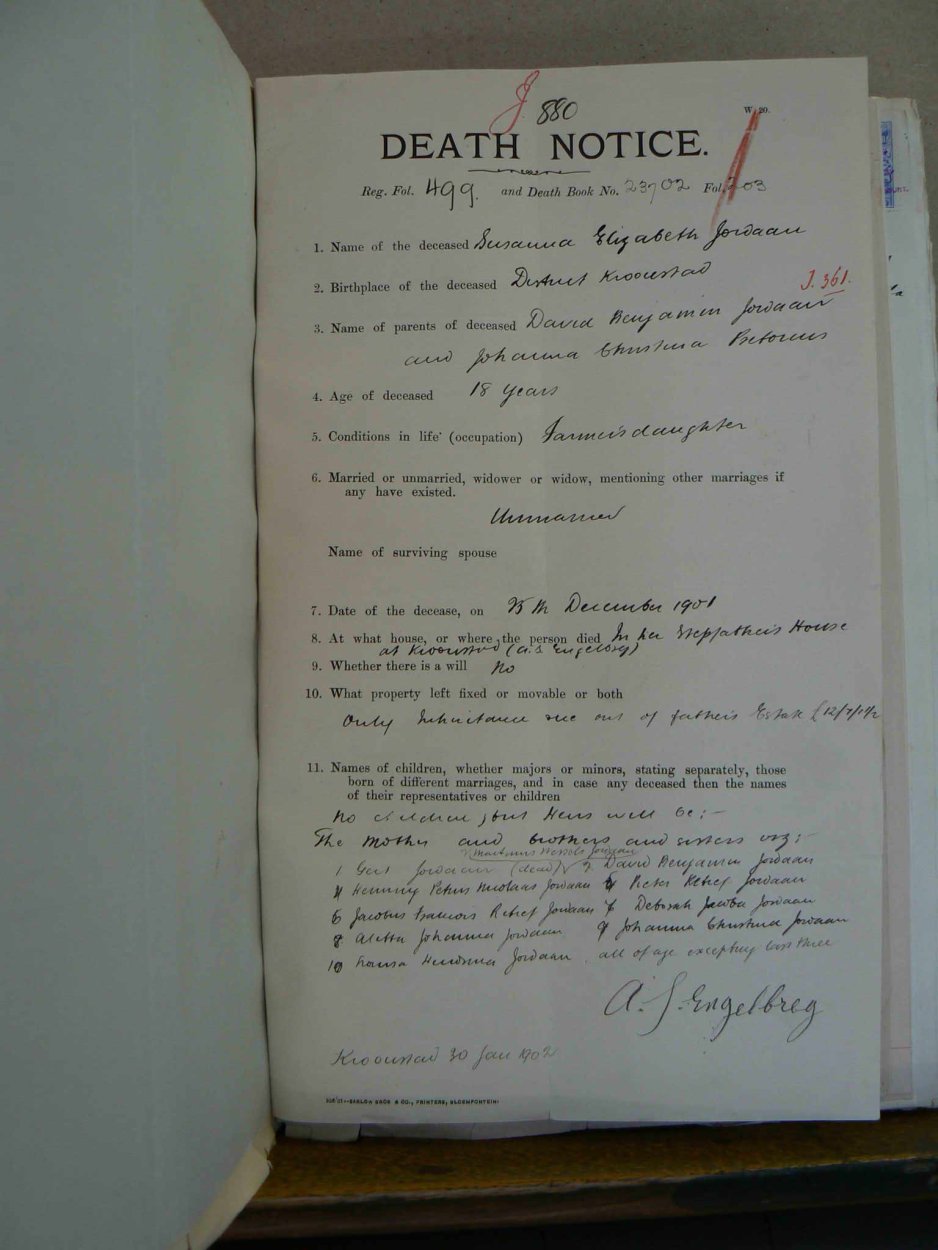 J. 880
W. 20.
DEATH NOTICE.
Reg. Fol. 499. and Death Book No. 23702 Fol. 203
1. Name of the deceased Susanna Elizabeth Jordaan
2. Birthplace of the deceased District Kroonstad
J. 361.
3. Name of parents of deceased David Benjamin Jordaan
and Johanna Christina Pretorius
4. Age of deceased 18 years
5. Conditions in life (occupation) Farmer's daughter
6. Married or unmarried, widower or widow, mentioning other marriages if
any have existed.
Unmarried
Name of surviving spouse
7. Date of the decease, on December 1901
8. At what house, or where the person died In her Stepfather's House
at Kroonstad (A.S. Engelbreg)
9. Whether there is a will No
10. What property left fixed or movable or both
Only Inheritance due out of father's Estate
11. Names of children, whether majors or minors, stating separately, those
born of different marriages, and in case any deceased then the names
of their representatives or children
No children, but Heirs will be:-
The Mother and brothers and sisters viz:-
2 Martinus Wessels Jordaan
1 Gert Jordaan (dead) 3 David Benjamin Jordaan
4 Henning Petrus Nicolaas Jordaan 5 Pieter Retief Jordaan
6 Jacobus Francois Retief Jordaan 7 Deborah Jacoba Jordaan
8 Aletta Johanna Jordaan 9 Johanna Christina Jordaan
10 Hendrina Jordaan all of age excepting last three
A. S. Engelbreg
Kroonstad 30 Jan 1902
BARLOW BROS & CO., PRINTERS, BLOEMFONTEIN